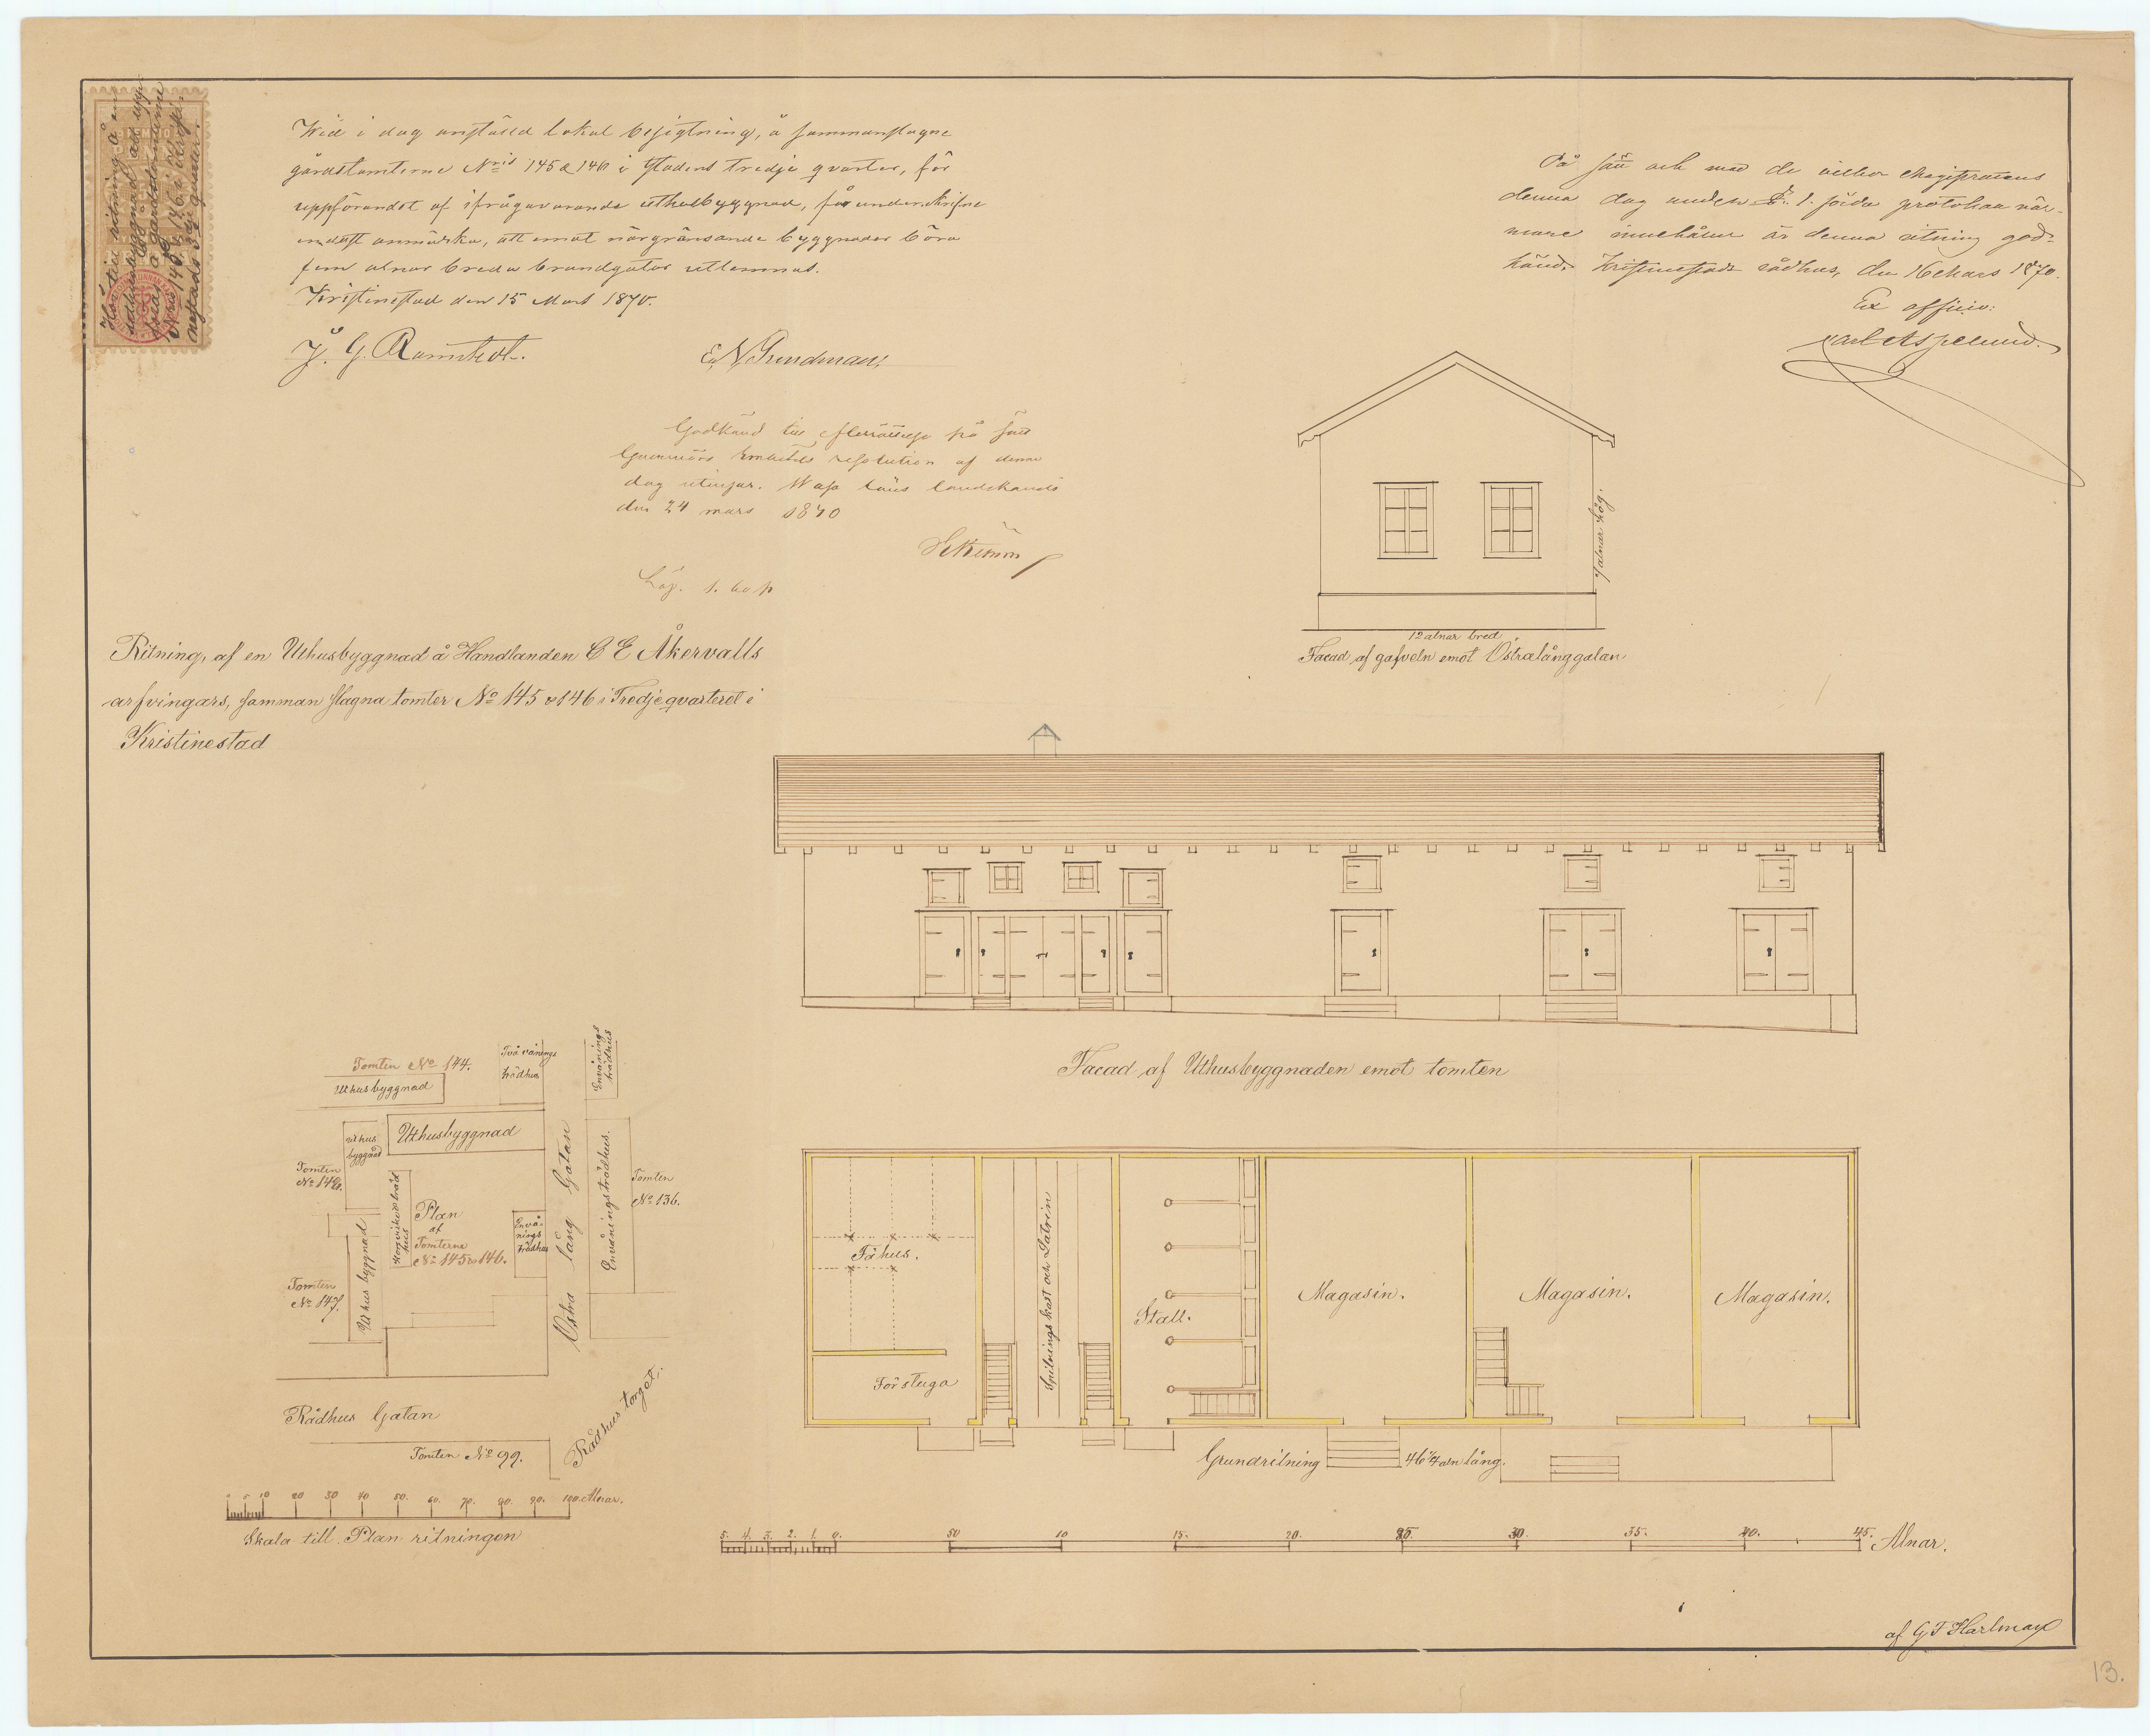 Wid i dag anstäld lokal besigtning, å sammanslagne
gårdstomterne Nris 145 & 146 i Stadens tredje qvarter, för
uppförandet af ifrågavarande uthusbyggnad, få undertecknade
endast anmärka, att emot närgränsande byggnader böra
fem alnar breda brandgator utlemnas.
Kristinestad den 15 Mars 1870.
J. G.
E. N. Grundman
På sätt och med de vilkor Magistratens
denna dag under §. 1. förda protokoll när-
mare innehåller är denna ritning god-
känd. Kristinestads rådhus, den 16 Mars 1870.
Ex officio:
Carl Aspelund.
Godkänd till efterrättelse på sätt
Guvernörs Embetets resolution af denne
dag utvisar. Wasa läns landskansli
den 24 mars 1870
Ritning, af en Uthusbyggnad å Handlanden C E Åkervalls
arfvingars, samman slagna tomter No 145 o 146 i Tredje qvarteret i
Kristinestad
7 alnar hög.
12 alnar bred
Facad af gafveln emot Östralånggatan
Facad af Uthusbyggnaden emot tomten
Tomten No 144.
Uthusbyggnad
Två vånings
trädhus
Envånings
trädhus
Uthusbyggnad
Uthus
byggnad
Tomten
No 148.
Plan
af
Tomterne
No 145 o 146.
Envå-
nings
trädhus
Östra lång Gatan
Envånings trädhus.
Tomten
No 136.
Tomten
No 147.
Uthus byggnad
Rådhus Gatan
Tomten No 99.
Rådhus torget.
0 5 10 20 30 40 50. 60. 70. 80. 90. 100. Alnar.
Skala till Plan ritningen
Fähus.
Förstuga
Spilnings kast och Latrin
Stall.
Magasin.
Magasin.
Magasin.
Grundritning
46 1/4 aln lång.
5. 4. 3. 2. 1. 0. 50 10 15. 20. 25. 30. 35. 40. 45. Alnar.
af G F Hartman
13.